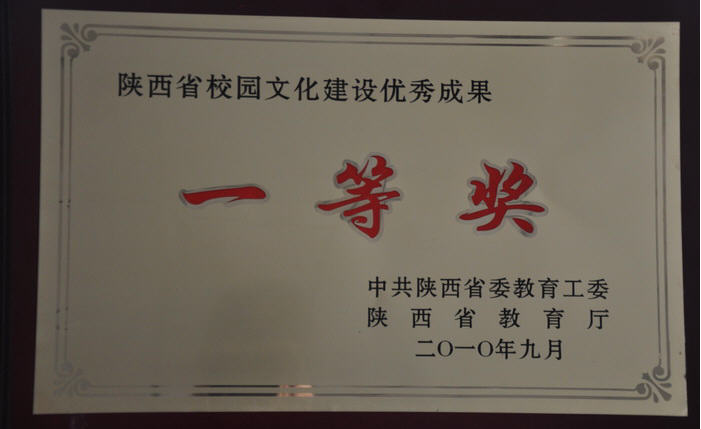 陕西省校园文化建设优秀成果
一等奖
中共陕西省委教育工委
陕西省教育厅
二〇一〇年九月